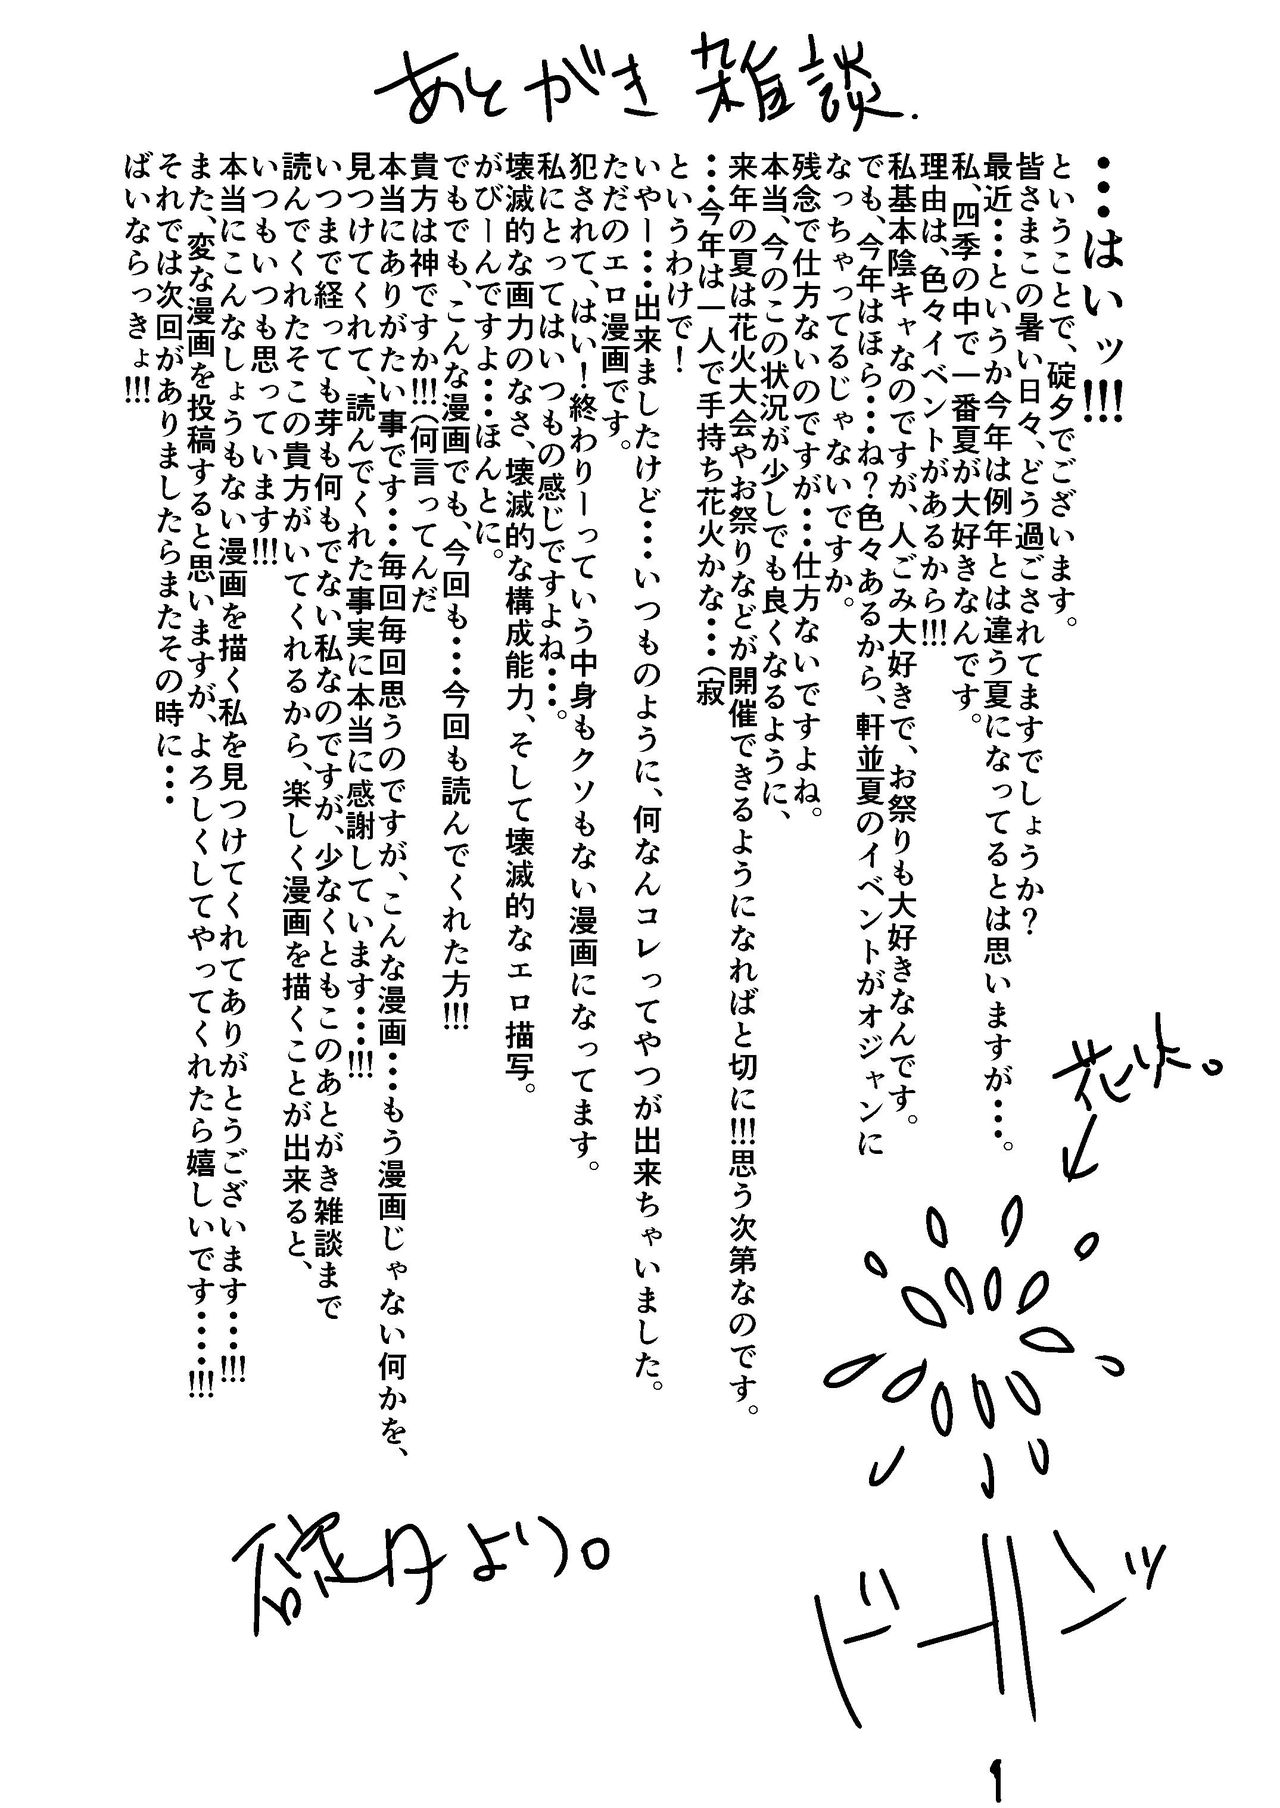 あとがき雑談.
・・・はいッ!!!
ということで、碇夕でございます。
皆さまこの暑い日々、どう過ごされてますでしょうか?
最近・・・というか今年は例年とは違う夏になってるとは思いますが・・・。
私、四季の中で一番夏が大好きなんです。
理由は、色々イベントがあるから!!!
私基本陰キャなのですが、人ごみ大好きで、お祭りも大好きなんです。
でも、今年はほら・・・ね?色々あるから、軒並夏のイベントがオジャンに
なっちゃってるじゃないですか。
残念で仕方ないのですが・・・仕方ないですよね。
本当、今のこの状況が少しでも良くなるように、
来年の夏は花火大会やお祭りなどが開催できるようになればと切に!!!思う次第なのです。
・・・今年は一人で手持ち花火かな・・・(寂
というわけで!
いやー・・・出来ましたけど・・・いつものように、何なんコレってやつが出来ちゃいました。
ただのエロ漫画です。
犯されて、はい!終わりーっていう中身もクソもない漫画になってます。
私にとってはいつもの感じですよね・・・。
壊滅的な画力のなさ、壊滅的な構成能力、そして壊滅的なエロ描写。
がびーんですよ・・・ほんとに。
でもでも、こんな漫画でも、今回も・・・今回も読んでくれた方!!!
貴方は神ですか!!!(何言ってんだ
本当にありがたい事です・・・毎回毎回思うのですが、こんな漫画・・・もう漫画じゃない何かを、
見つけてくれて、読んでくれた事実に本当に感謝しています・・・!!!
いつまで経っても芽も何もでない私なのですが、少なくともこのあとがき雑談まで
読んでくれたそこの貴方がいてくれるから、楽しく漫画を描くことが出来ると、
いつもいつも思っています!!!
本当にこんなしょうもない漫画を描く私を見つけてくれてありがとうございます・・・!!!
また、変な漫画を投稿すると思いますが、よろしくしてやってくれたら嬉しいです・・・・!!!
それでは次回がありましたらまたその時に・・・
ばいならっきょ!!!
花火。
ドーンッ
碇夕より。